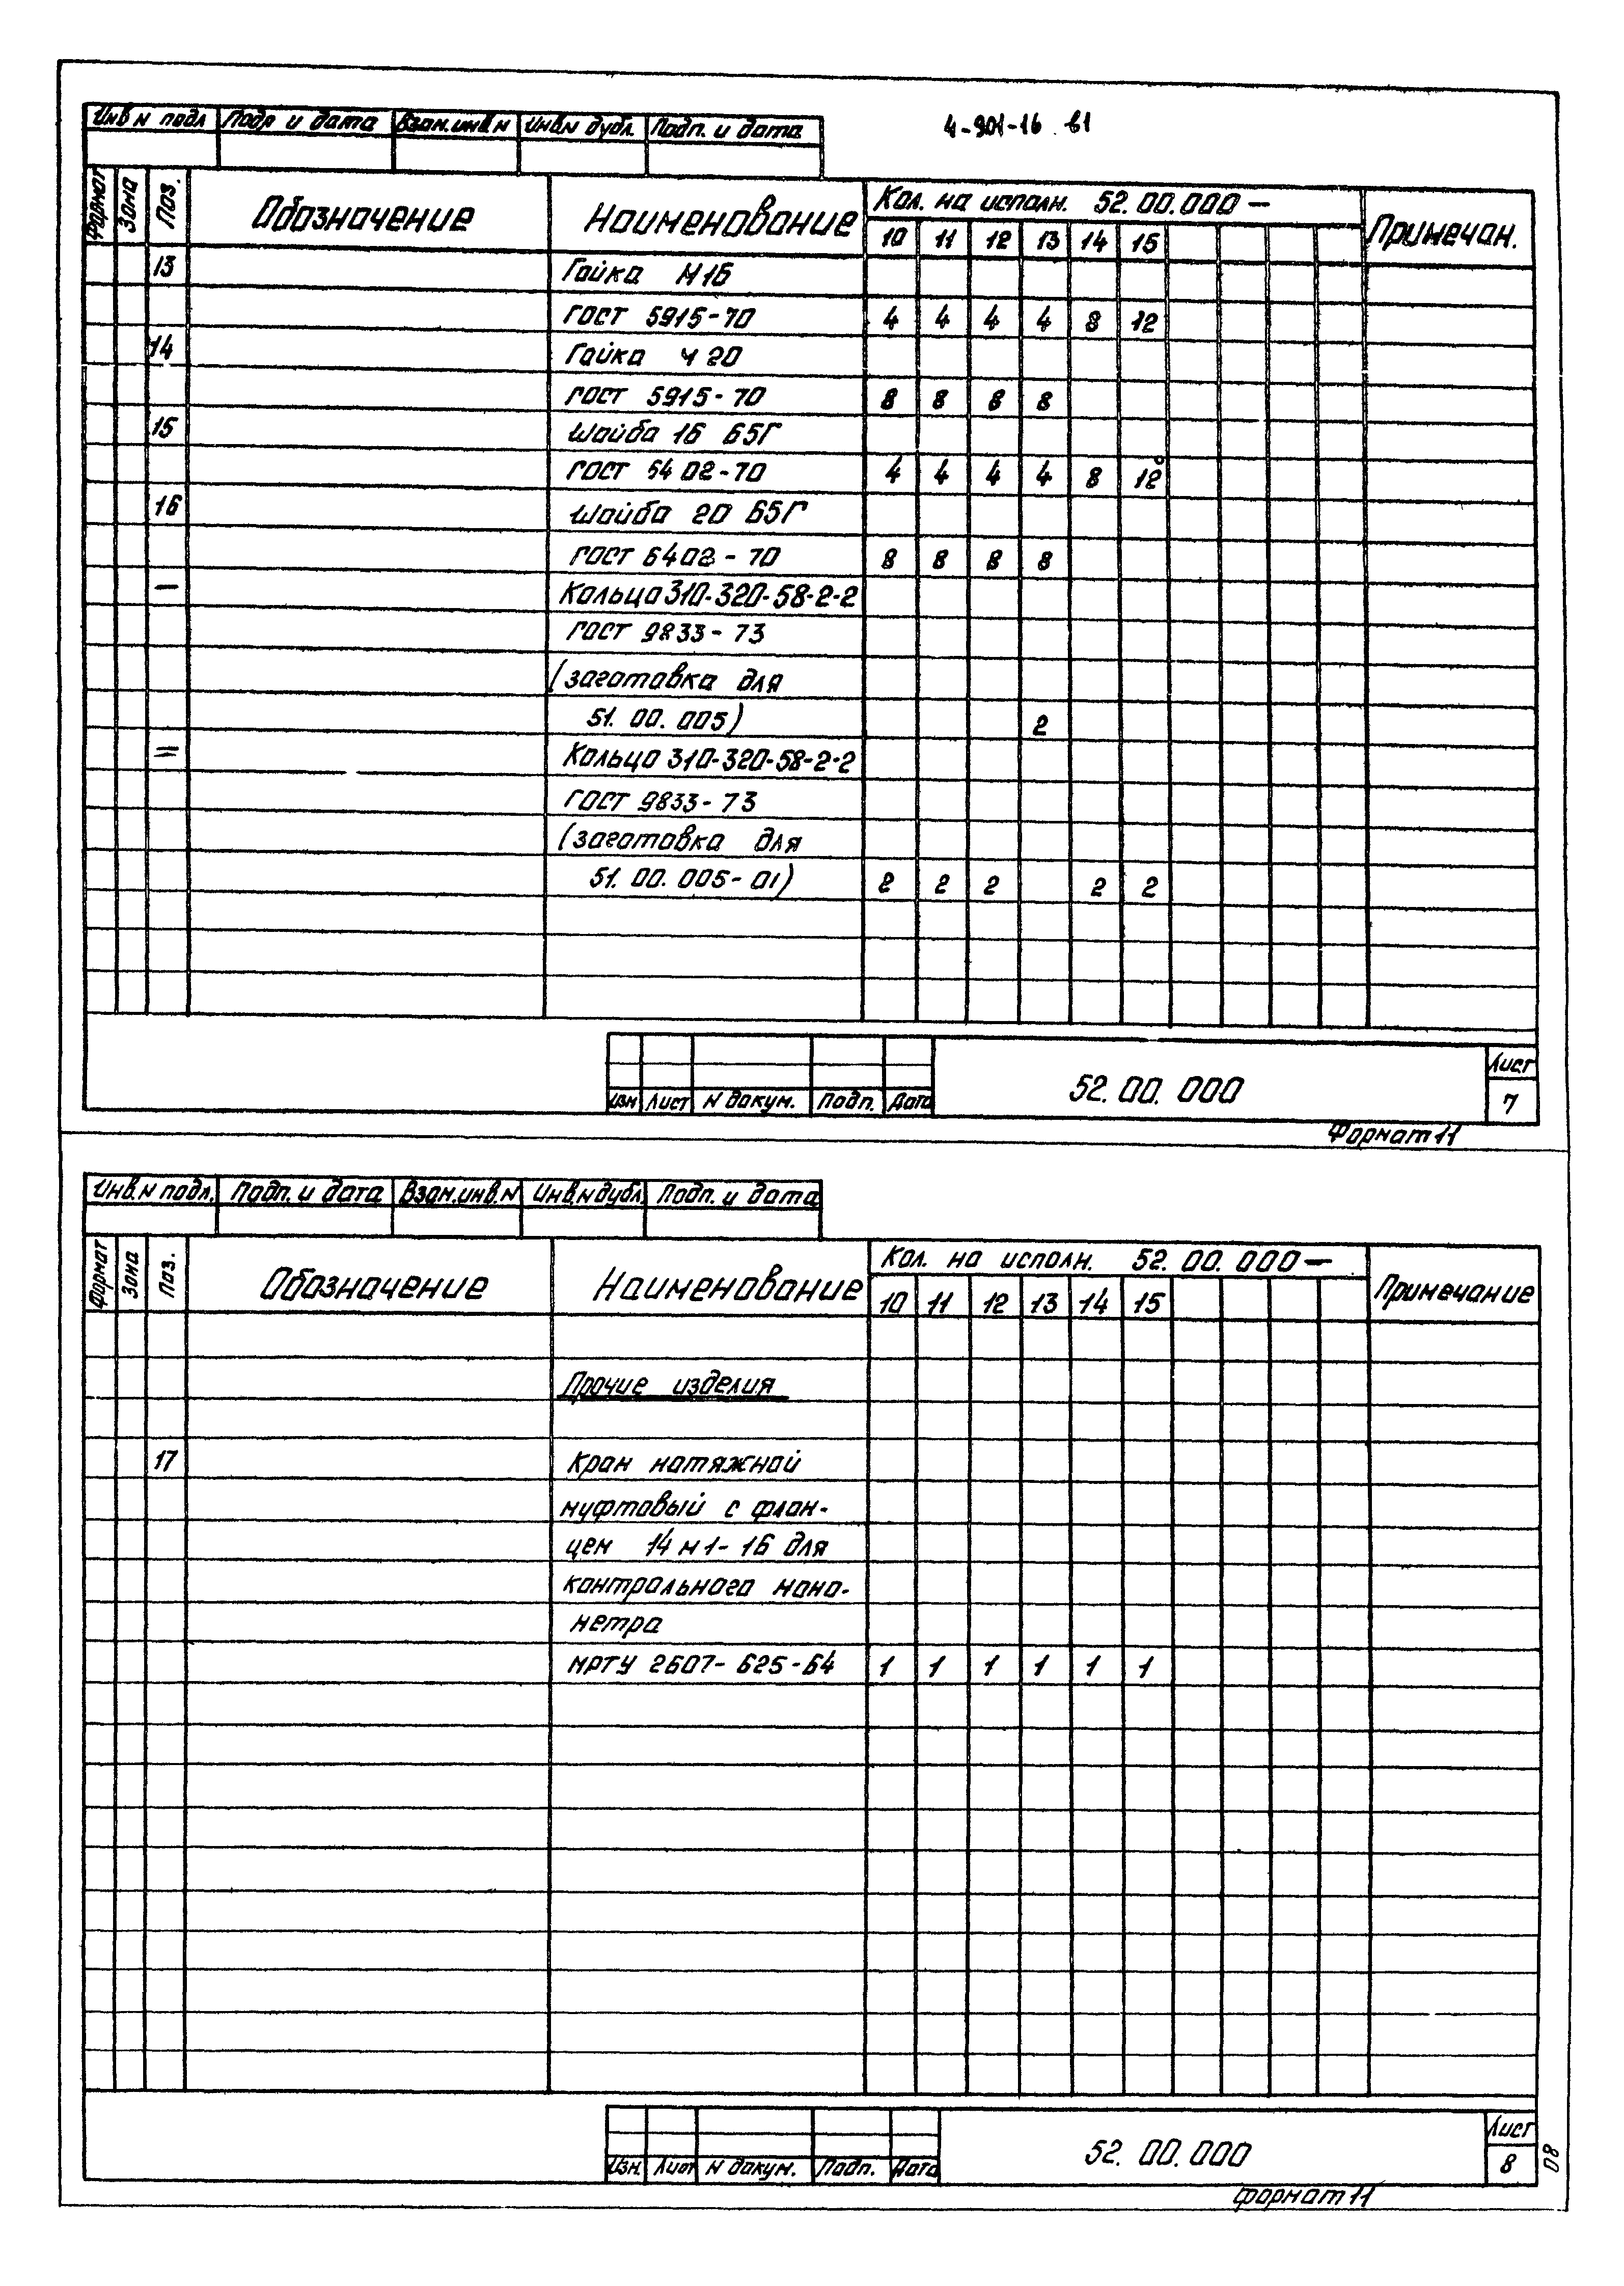 4-901-16 в1
Инв N подл Подп и дата Взам.инв N Инв.N дубл. Подп. и дата
Формат Зона Поз. Обозначение Наименование Кол. на исполн. 52.00.000— Примечан.
10 11 12 13 14 15
13 Гайка М16
ГОСТ 5915-70 4 4 4 4 8 12
14 Гайка М 20
ГОСТ 5915-70 8 8 8 8
15 Шайба 16 65Г
ГОСТ 6402-70 4 4 4 4 8 12
16 Шайба 20 65Г
ГОСТ 6402-70 8 8 8 8
— Кольцо 310-320-58-2-2
ГОСТ 9833-73
(заготовка для
51.00.005) 2
= Кольцо 310-320-58-2-2
ГОСТ 9833-73
(заготовка для
51.00.005-01) 2 2 2 2 2
52.00.000 Лист
Изм Лист N докум. Подп. Дата 7
Формат 11
Инв.N подл. Подп. и дата Взам.инв.N Инв.N дубл. Подп. и дата
Формат Зона Поз. Обозначение Наименование Кол. на исполн. 52.00.000— Примечание
10 11 12 13 14 15
Прочие изделия
17 Кран натяжной
муфтовый с флан-
цем 14М1-16 для
контрольного мано-
метра
МРТУ 2607-625-64 1 1 1 1 1 1
52.00.000 Лист
Изм. Лист N докум. Подп. Дата 8
Формат 11
80